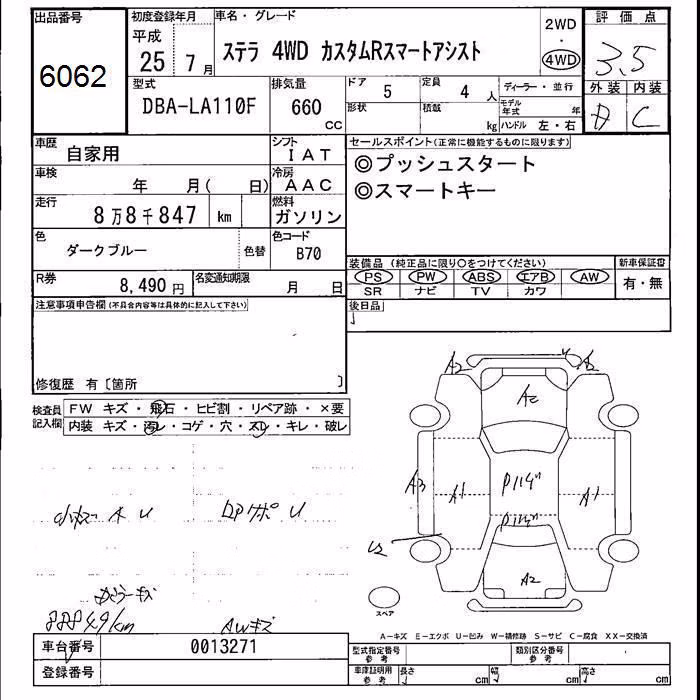 出品番号
6062
初度登録年月
平成
25 7 月
車名・グレード
ステラ 4WD カスタムRスマートアシスト
2WD
・
4WD
評価点
3.5
外装 内装
C
型式
DBA-LA110F
排気量
660
CC
ドア
5
形状
定員
4 人
積載
kg
ディーラー・並行
モデル年式 年
ハンドル 左・右
車歴
自家用
シフト
IAT
車検
年 月( 日)
冷房
AAC
走行
8万8千847 km
燃料
ガソリン
色
ダークブルー
色替
色コード
B70
R券
8,490 円
名変通知期限
月 日
セールスポイント(正常に機能するものに限ります)
◎プッシュスタート
◎スマートキー
装備品(純正品に限り○をつけてください)
PS PW ABS エアB AW
SR ナビ TV カワ
新車保証書
有・無
後日品
注意事項申告欄(不具合内容等は具体的に記入して下さい)
修復歴 有〔箇所 〕
検査員記入欄
FW キズ・飛石・ヒビ割・リペア跡・×要
内装 キズ・汚レ・コゲ・穴・スレ・キレ・破レ
A2
A2
A2
A3
A1
A1
A2
スペア
AWキズ
A-キズ E-エクボ U-凹み W-補修跡 S-サビ C-腐食 XX-交換済
車台番号
0013271
登録番号
型式指定番号
参考
類別区分番号
参考
車庫証明用
参考
長さ cm
幅 cm
高さ cm